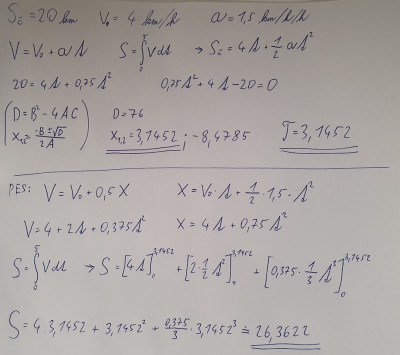 Sč = 20 km   V₀ = 4 km/h   a = 1,5 km/h/h
V = V₀ + a t   S = ∫₀ᵗ V dt → Sč = 4t + 1/2 a t²
20 = 4t + 0,75t²   0,75t² + 4t - 20 = 0
(D = B² - 4AC   D = 76
X₁,₂ = (-B ± √D)/2A)   X₁,₂ = 3,1452 ; -8,4785   T = 3,1452
PES: V = V₀ + 0,5 X   X = V₀ · t + 1/2 · 1,5 · t²
V = 4 + 2t + 0,375t²   X = 4t + 0,75t²
S = ∫₀ᵗ V dt → S = [4t]₀^3,1452 + [2 · 1/2 t²]₀^3,1452 + [0,375 · 1/3 t³]₀^3,1452
S = 4 · 3,1452 + 3,1452² + 0,375/3 · 3,1452³ ≐ 26,3622